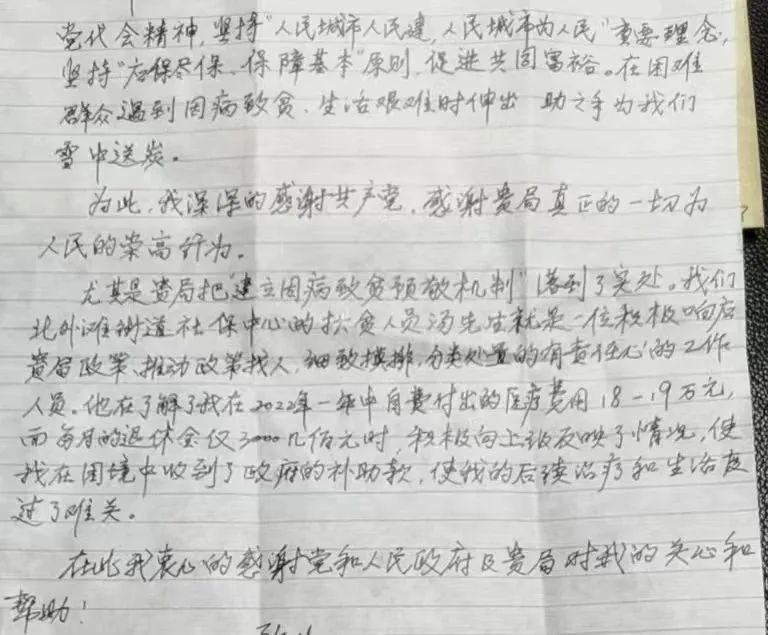 党代会精神,坚持"人民城市人民建,人民城市为人民"重要理念,
坚持"应保尽保、保障基本"原则,促进共同富裕。在困难
群众遇到因病致贫、生活艰难时伸出 助之手为我们
雪中送炭。
为此,我深深的感谢共产党,感谢贵局真正的一切为
人民的崇高行为。
尤其是贵局把"建立因病致贫预警机制"落到了实处。我们
北外滩街道社保中心的扶贫人员汤先生就是一位积极响应
贵局政策、推动政策找人,细致摸排,分类处置的有责任心的工作
人员。他在了解了我在2022年一年中自费付出的医疗费用18-19万元,
而每月的退休金仅3000几佰元时 积极向上级反映了情况,使
我在困境中收到了政府的补助款,使我的后续治疗和生活度
过了难关。
在此我衷心的感谢党和人民政府及贵局对我的关心和
帮助!